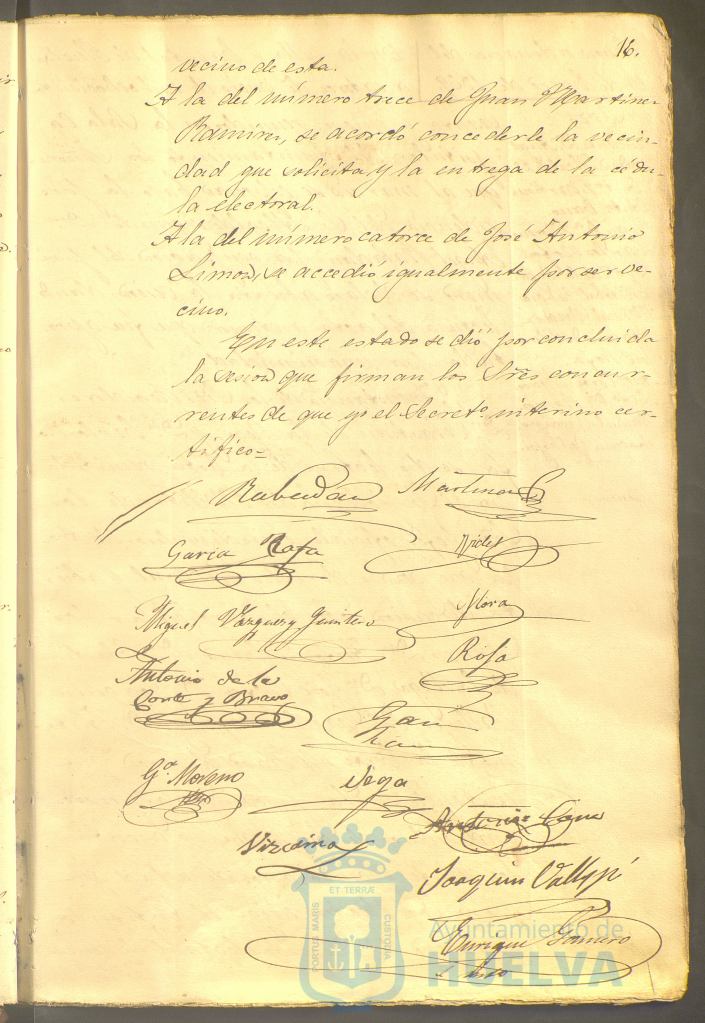 16.
vecino de esta.
A la del número trece de Juan Martinez
Ramirez, se acordó concederle la vecin-
dad que solicita y la entrega de la cédu-
la electoral.
A la del número catorce de José Antonio
Limon, se accedió igualmente por ser ve-
cino.
En este estado se dió por concluida
la sesion que firman los Sres concur-
rentes de que yo el Secreto. interino cer-
tifico=
Rabadan Martinez
Garcia Rafa Vides
Miguel Vazquez y Quintero Mora
Antonio de la Rosa
Corte y Bravo
Ga. Moreno Vega
Vizcaino Antonio Cano
Joaquin
Enrique Romero
ET TERRÆ
PORTUS MARIS
CUSTODIA
Ayuntamiento de
HUELVA